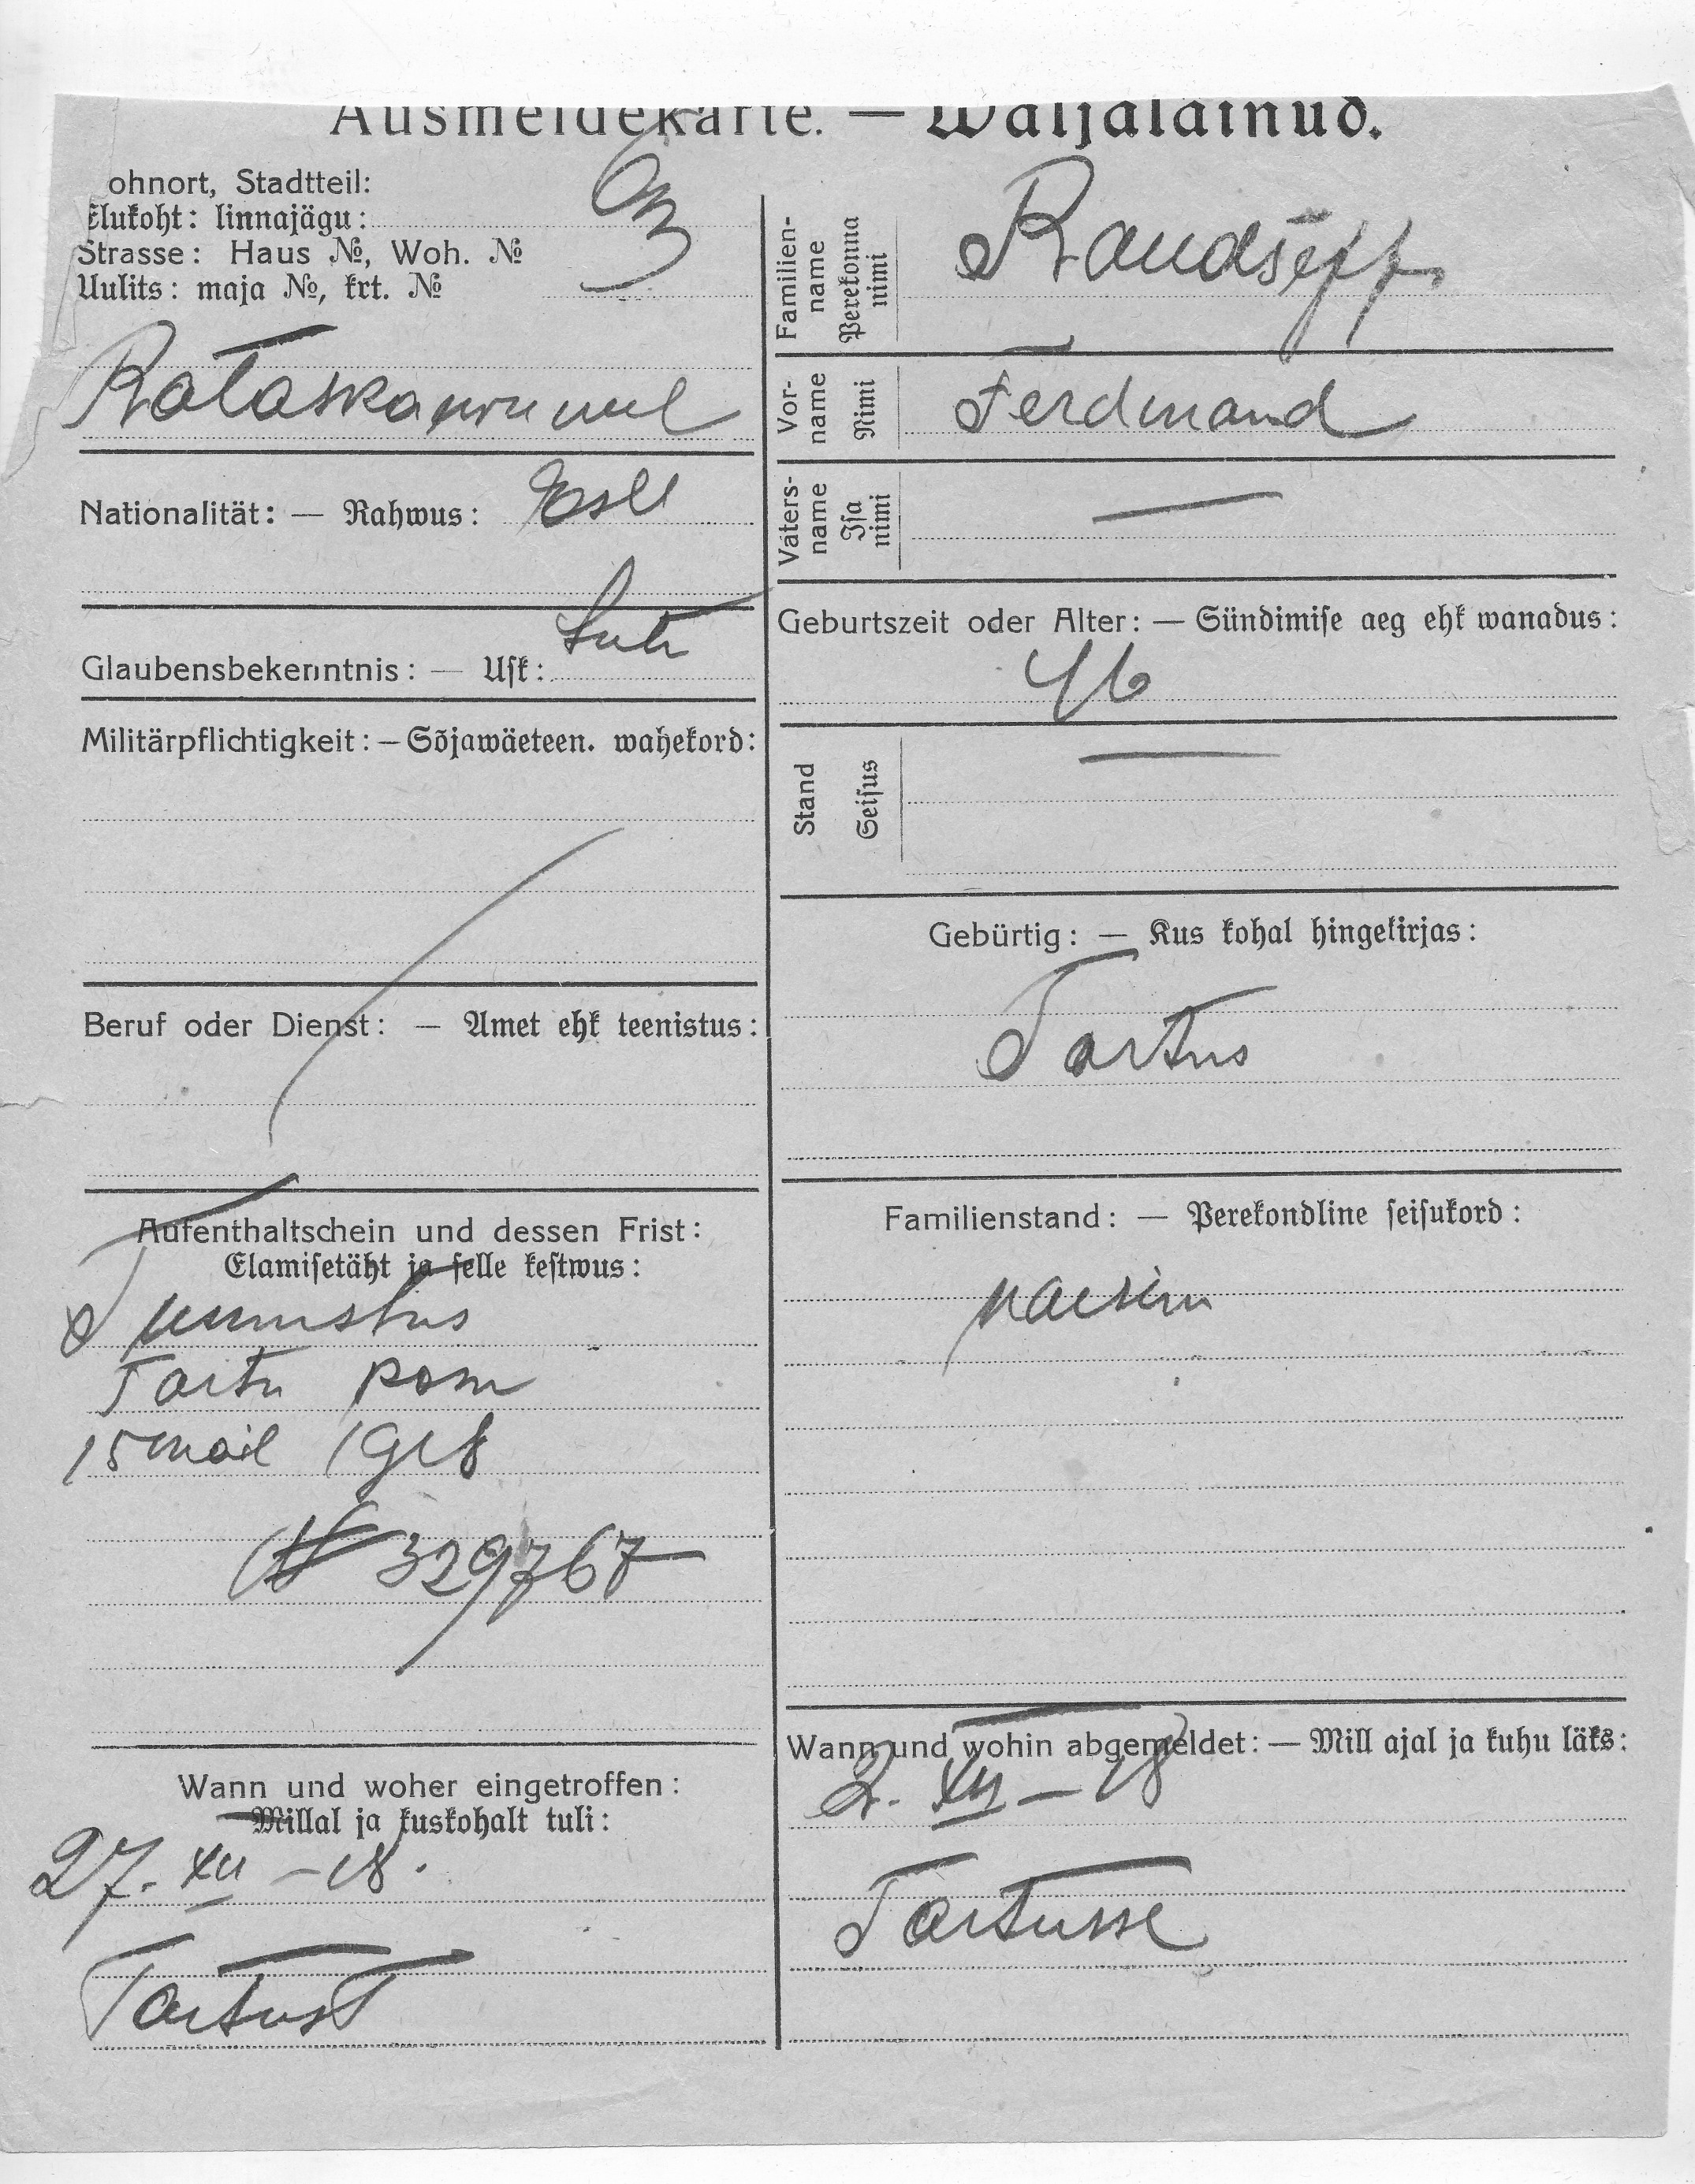 Ausmeldekarte. — Wäljaläinud.
ohnort, Stadtteil:
Elukoht: linnajägu:
Strasse: Haus №, Woh. №
Uulits: maja №, krt. №
Nationalität: — Rahwus: Esti
Glaubensbekenntnis: — Usk: Luth
Militärpflichtigkeit: — Sõjawäeteen. wahekord:
Beruf oder Dienst: — Amet ehk teenistus:
Aufenthaltschein und dessen Frist:
Elamisetäht ja selle kestwus:
Tunnistus
Tartu kom
15 mail 1918
№ 329767
Wann und woher eingetroffen:
Millal ja kuskohalt tuli:
27. XII – 18.
Tartust
Familien-
name
Perekonna
nimi
Raudsepp
Vor-
name
Nimi
Ferdinand
Vaters-
name
Isa
nimi
—
Geburtszeit oder Alter: — Sündimise aeg ehk wanadus:
46
Stand
Seisus
—
Gebürtig: — Kus kohal hingekirjas:
Tartus
Familienstand: — Perekondline seisukord:
naesem
Wann und wohin abgemeldet: — Mill ajal ja kuhu läks:
2. XII – 18
Tartusse